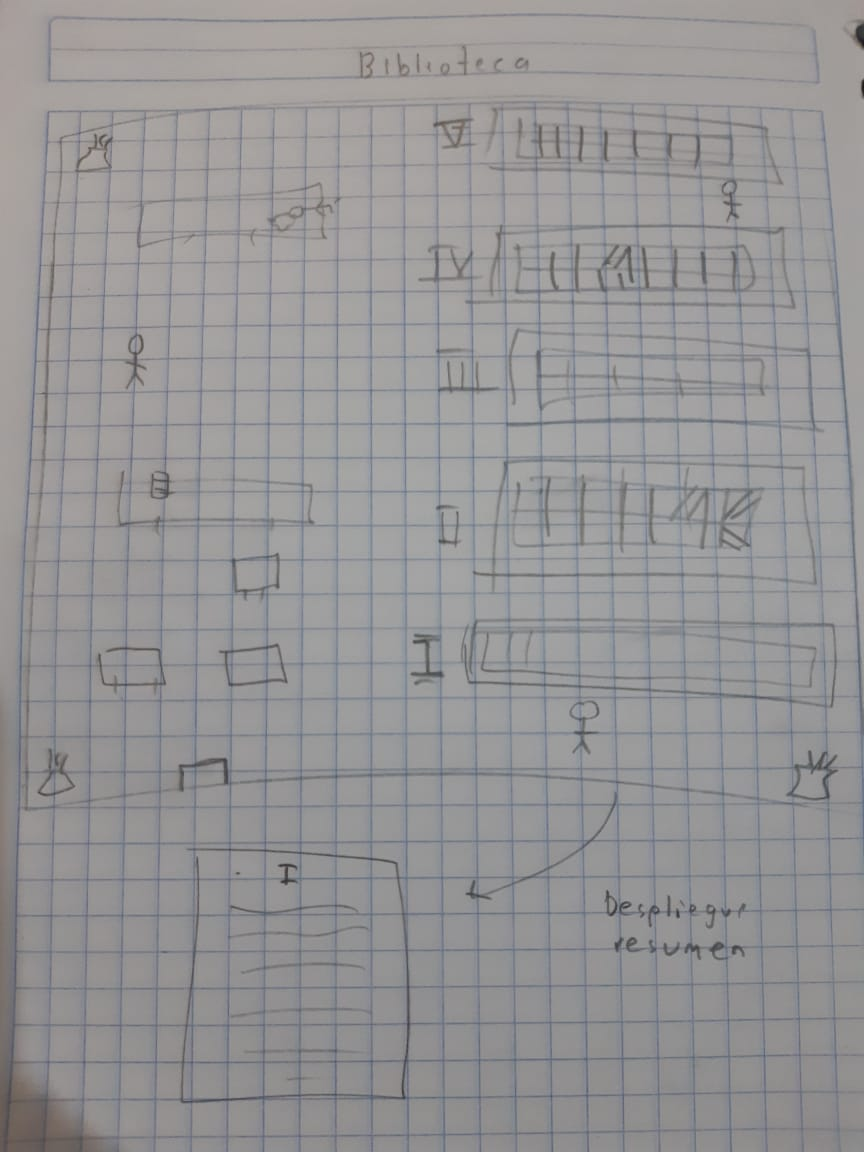 Biblioteca
V
IV
III
II
I
I
Despliegue
resumen